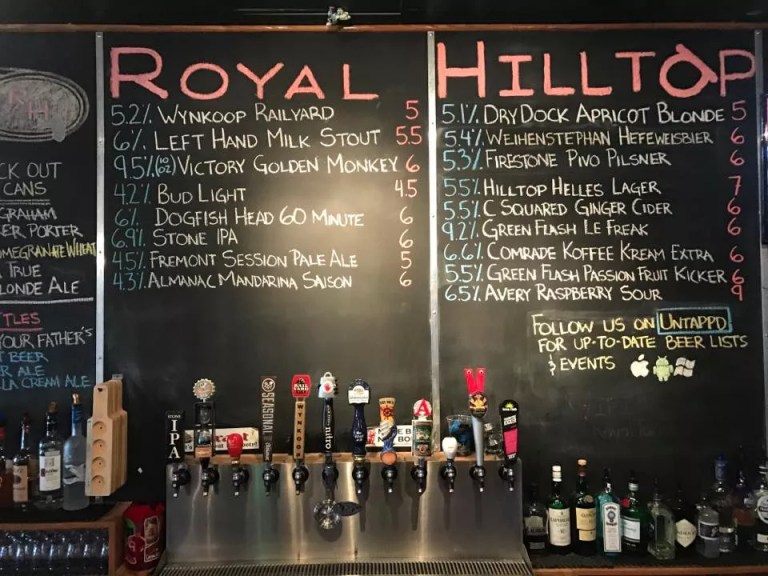 RH
CK OUT
CANS
GRAHAM
ER PORTER
OMEGRANATE WHEAT
TRUE
LONDE ALE
TLES
YOUR FATHER'S
T BEER
ER ALE
LA CREAM ALE
ROYAL
5.2% WYNKOOP RAILYARD 5
6% LEFT HAND MILK STOUT 5.5
9.5% (10 OZ) VICTORY GOLDEN MONKEY 6
4.2% BUD LIGHT 4.5
6% DOGFISH HEAD 60 MINUTE 6
6.9% STONE IPA 6
4.5% FREMONT SESSION PALE ALE 5
4.3% ALMANAC MANDARINA SAISON 6
HILLTOP
5.1% DRY DOCK APRICOT BLONDE 5
5.4% WEIHENSTEPHAN HEFEWEISBIER 6
5.3% FIRESTONE PIVO PILSNER 6
5.5% HILLTOP HELLES LAGER 7
5.5% C SQUARED GINGER CIDER 6
9.2% GREEN FLASH LE FREAK 6
6.6% COMRADE KOFFEE KREAM EXTRA 6
5.5% GREEN FLASH PASSION FRUIT KICKER 6
6.5% AVERY RASPBERRY SOUR 9
FOLLOW US ON UNTAPPD
FOR UP-TO-DATE BEER LISTS
& EVENTS
STONE
IPA
SEASONAL
WYNKOOP
nitro
A